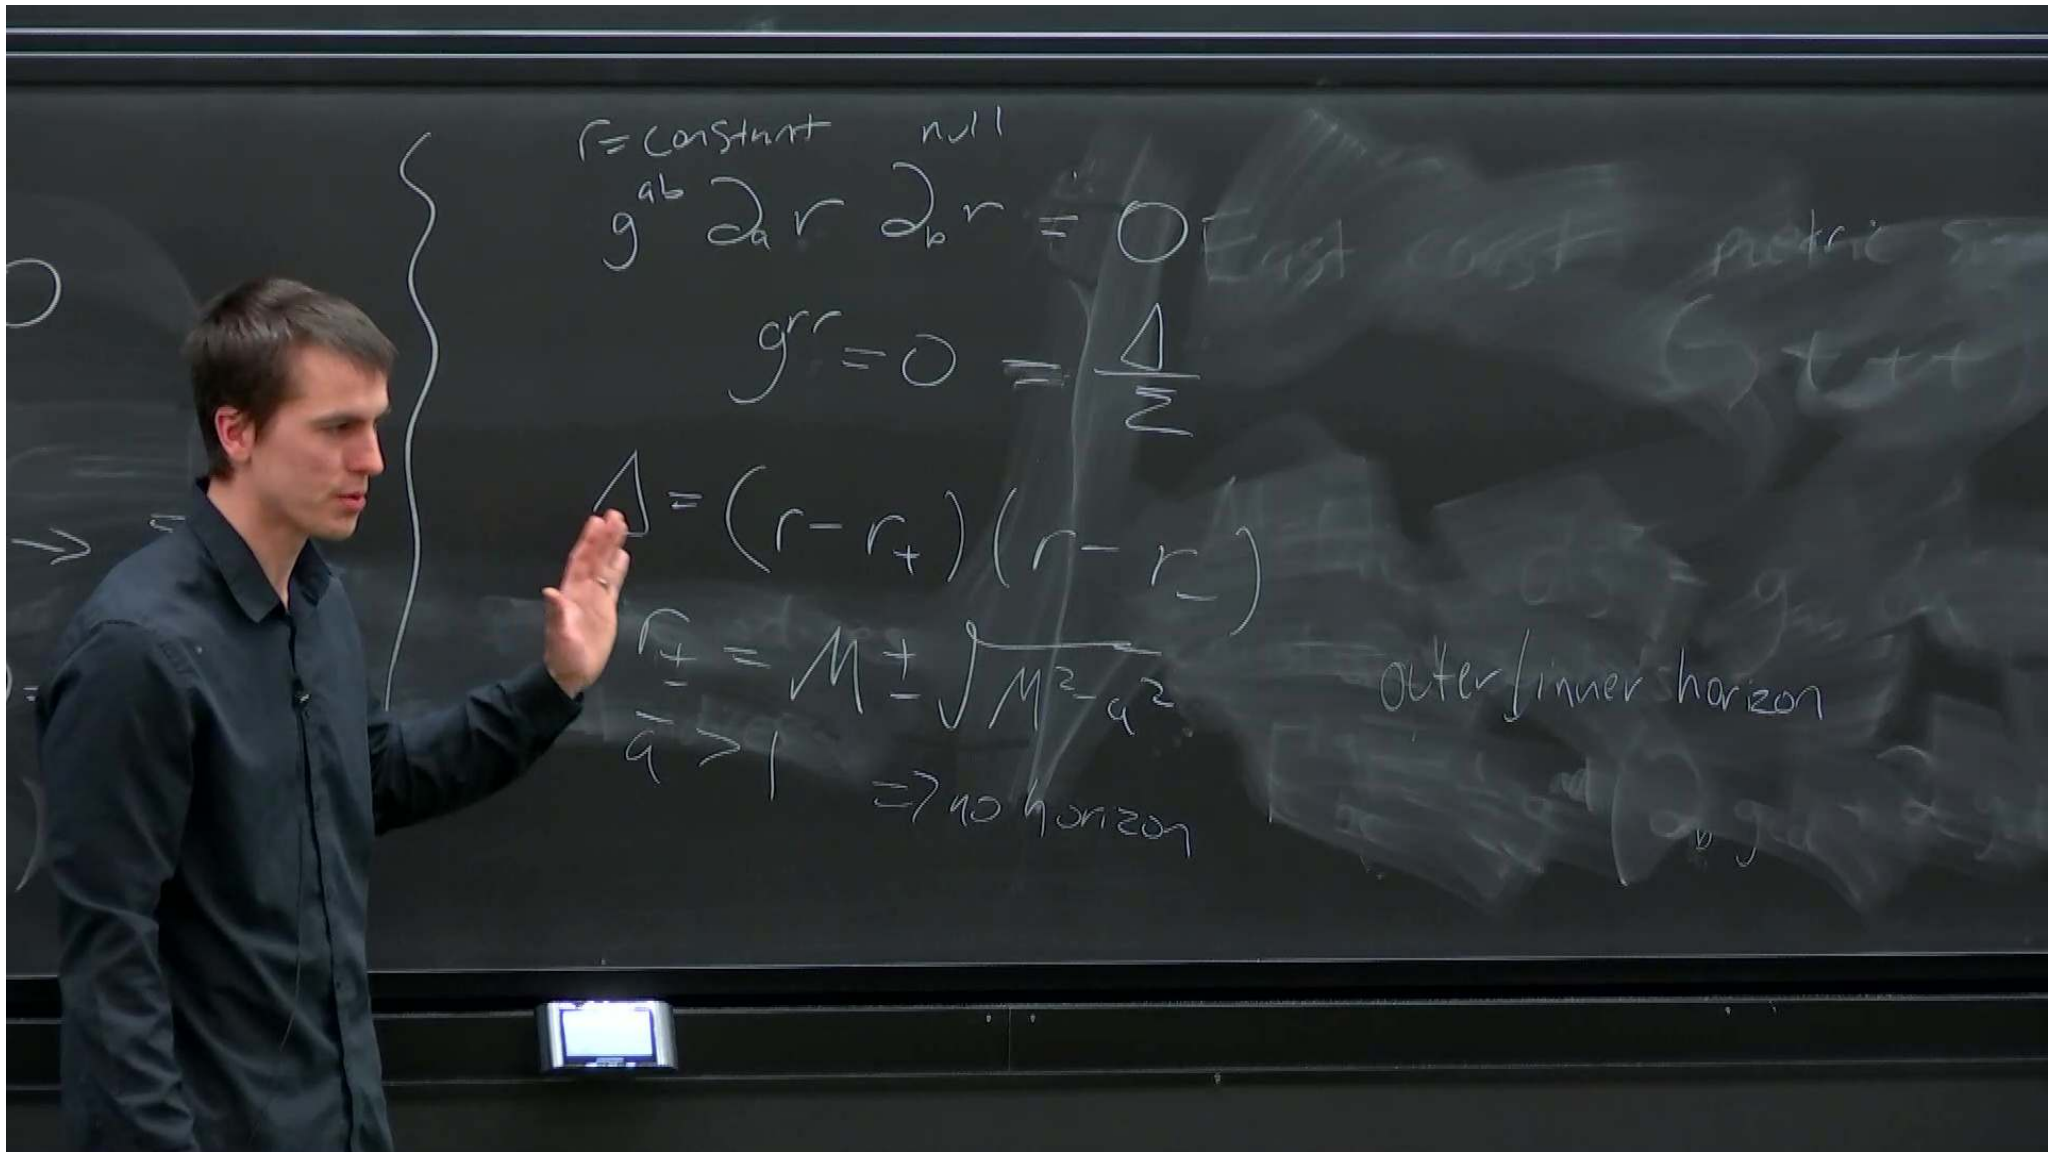 r=constant null
g^{ab} ∂_a r ∂_b r = 0
East coast metric
g^{rr} = 0 = Δ/Σ
Δ = (r - r_+)(r - r_-)
r_± = M ± √(M² - a²) outer/inner horizon
ā > 1 ⇒ no horizon